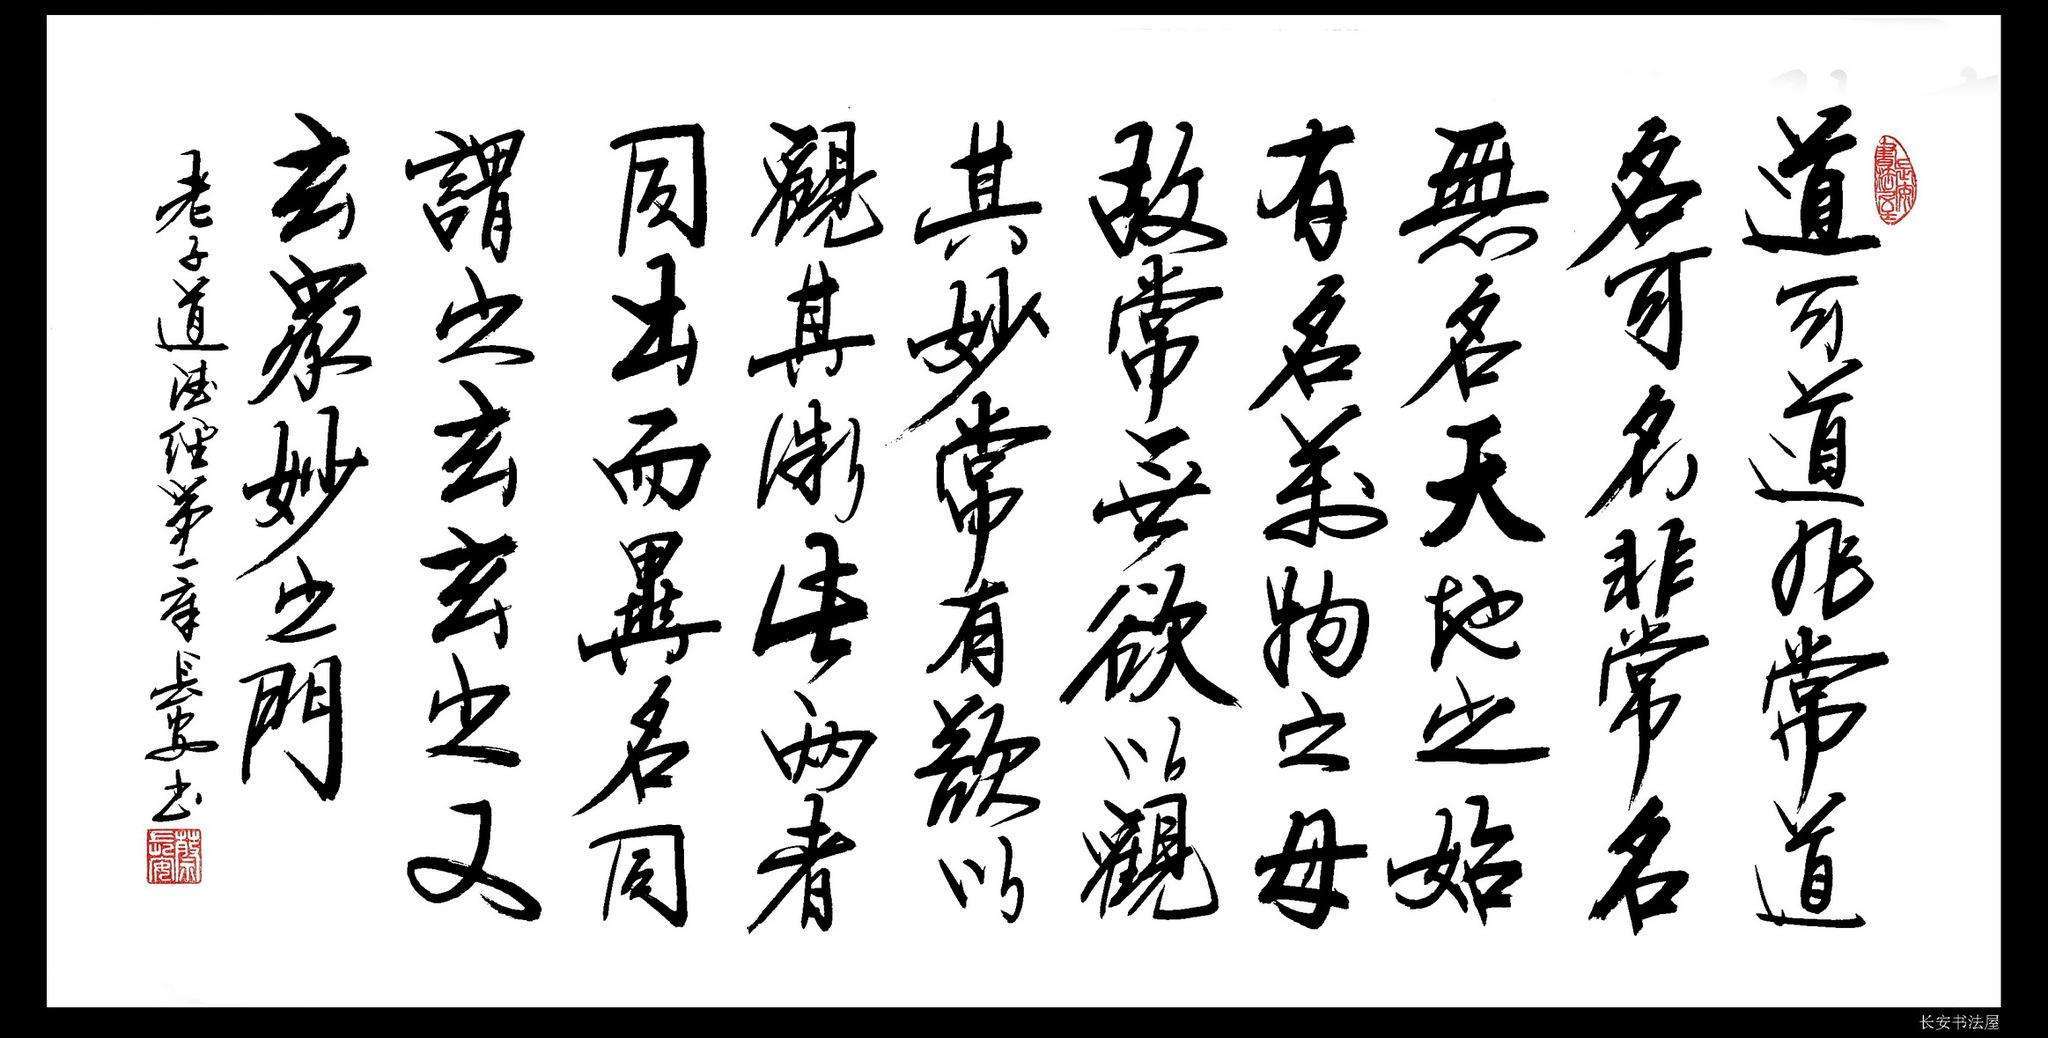 長安書法屋
道可道非常道
名可名非常名
無名天地之始
有名萬物之母
故常無欲以觀
其妙常有欲以
觀其徼此兩者
同出而異名同
謂之玄玄之又
玄眾妙之門
老子道德經第一章 長安书
长安书法屋